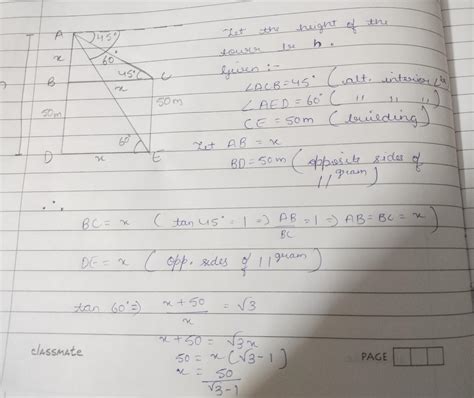 A 45°
x 60°
45° C
B x
50m 50m
60°
D x E
Let the height of the
tower be h.
Given :-
∠ACB = 45° (alt. interior
∠AED = 60° ( " " " )
CE = 50m ( building )
Let AB = x
BD = 50m ( opposite sides of
||gram )
∴
BC = x ( tan 45° = 1 => AB/BC = 1 => AB = BC = x )
DE = x ( opp. sides of ||gram )
tan 60° => x + 50 / x = √3
x + 50 = √3x
50 = x (√3 - 1)
x = 50 / √3 - 1
classmate PAGE